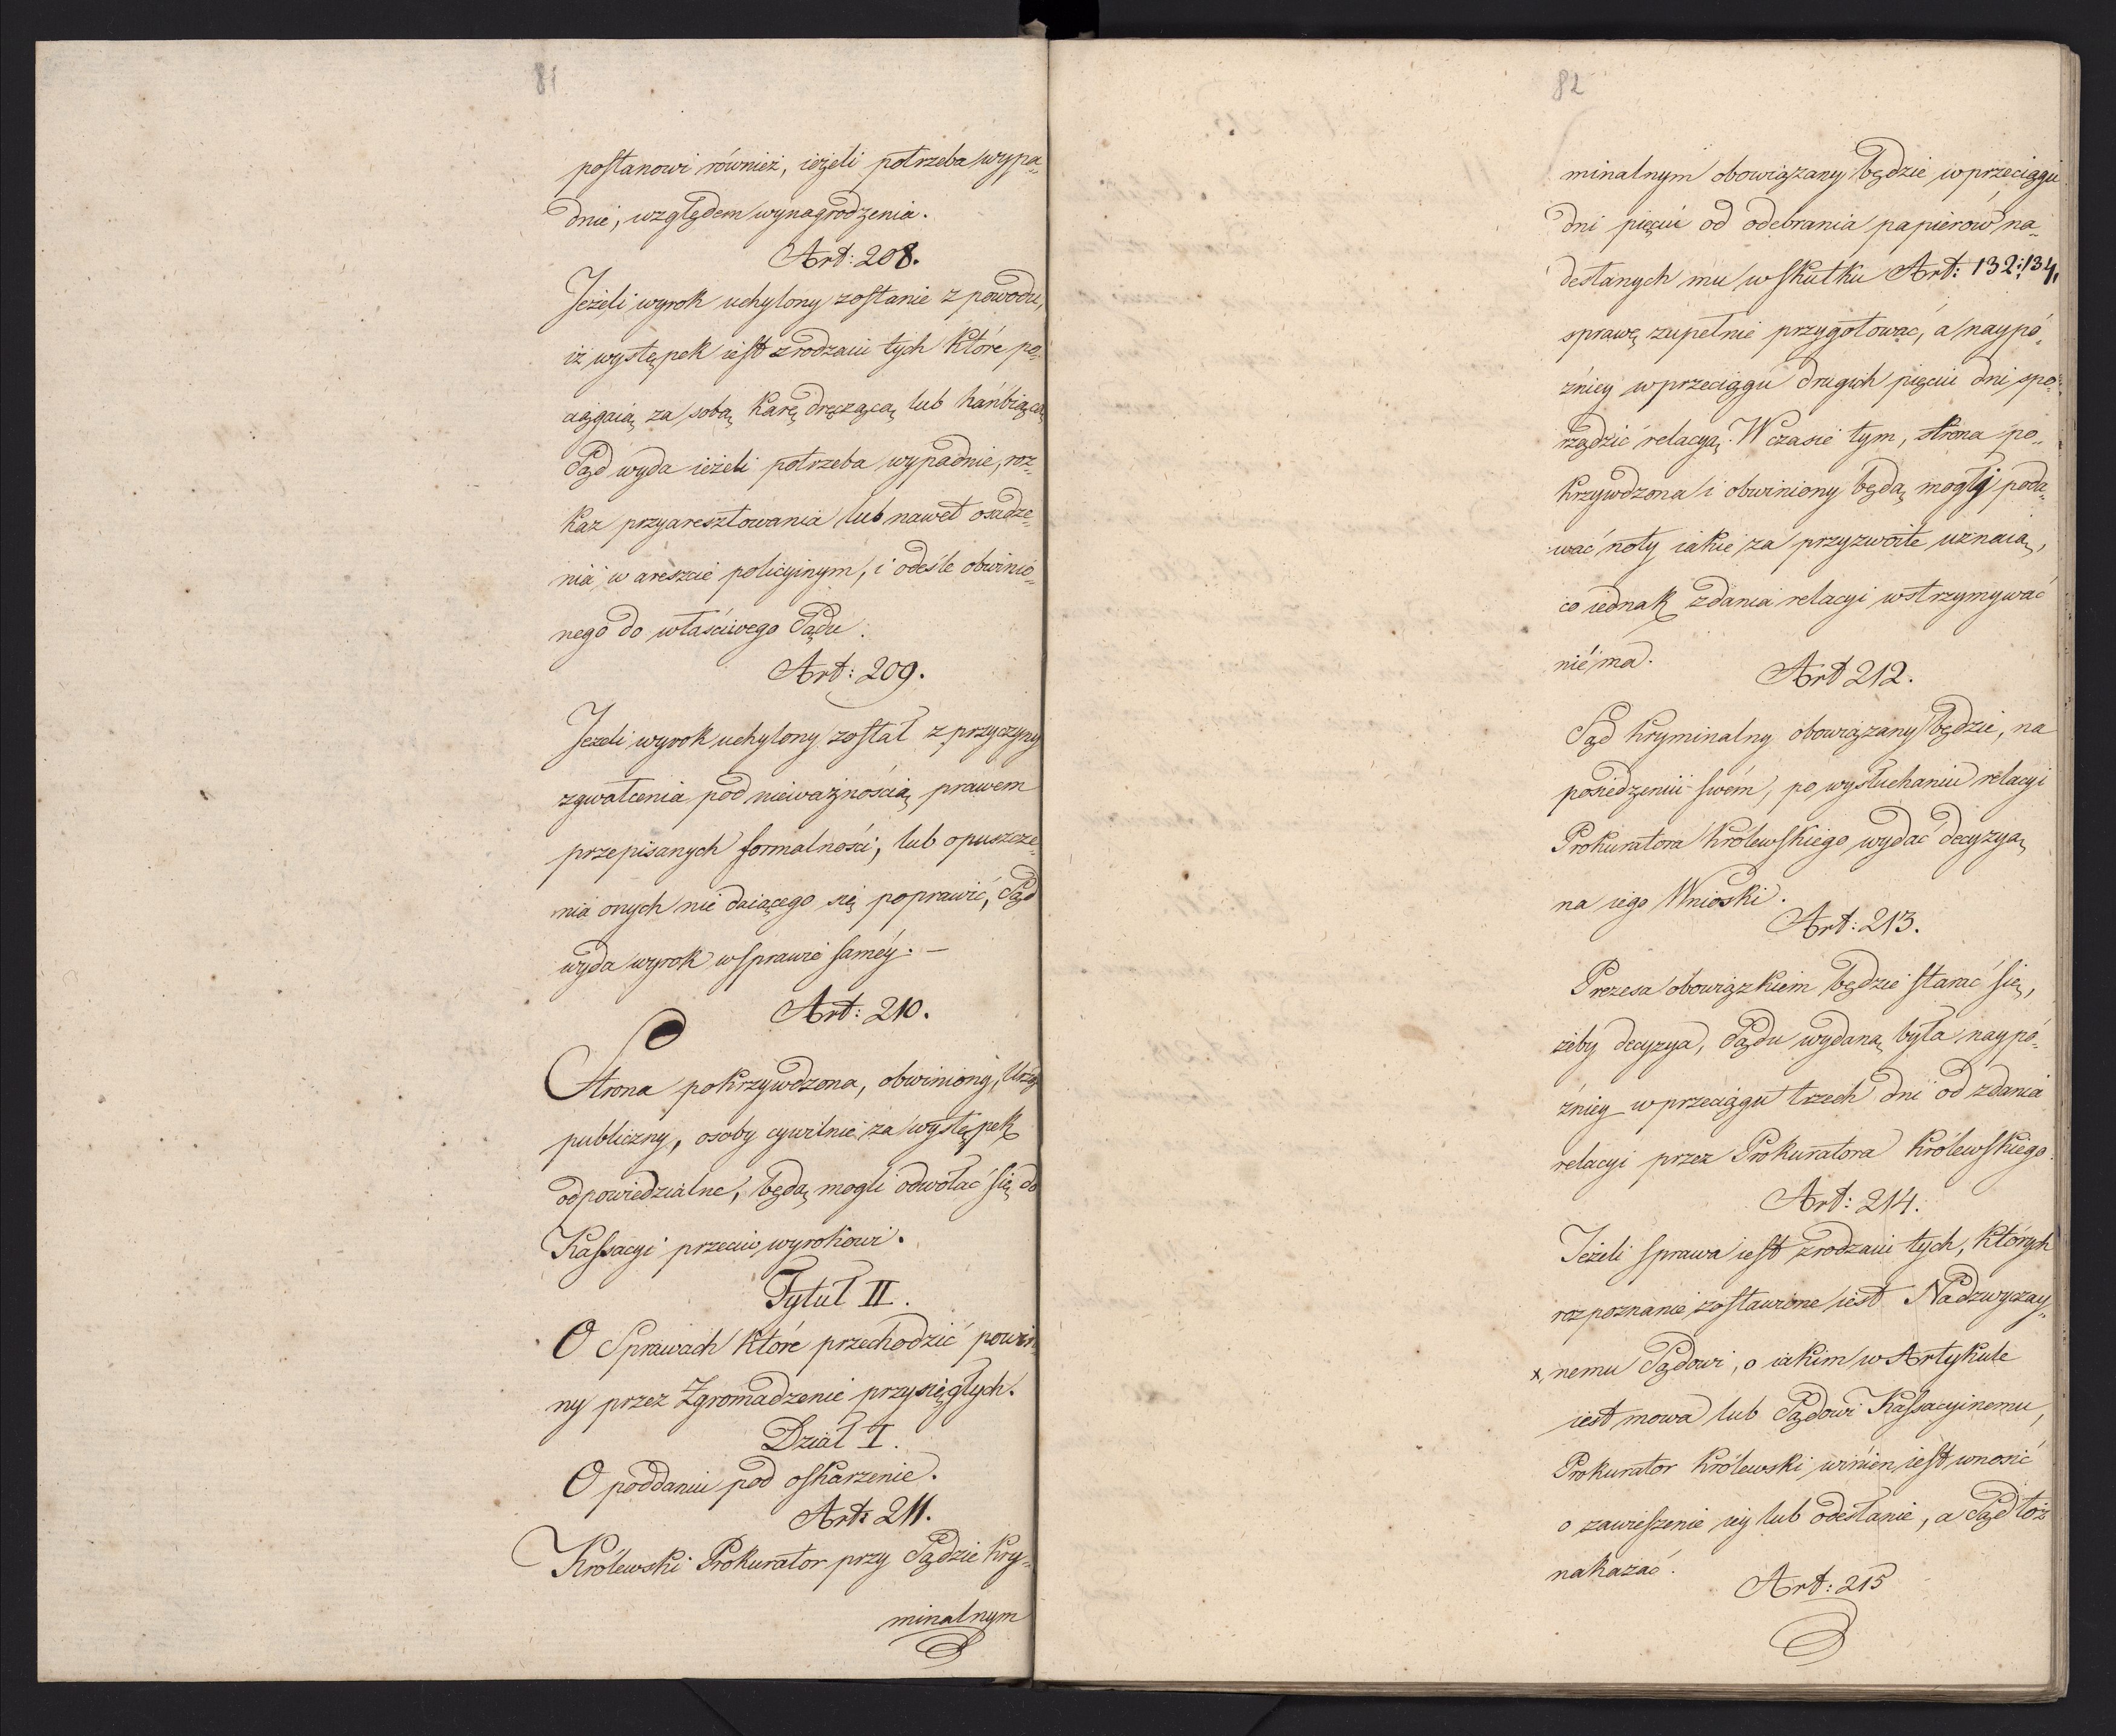 81
postanowi również, ieżeli potrzeba wypa„
dnie, względem wynagrodzenia.
Art: 208.
Jeżeli wyrok uchylony zostanie z powodu,
iż występek iest z rodzaiu tych które po„
ciągaią za sobą karę dręczącą lub hańbiącą
Sąd wyda ieżeli potrzeba wypadnie, roz„
kaz przyaresztowania lub nawet osadze„
nia w areszcie policyinym, i odeśle obwinio„
nego do właściwego Sądu.
Art: 209.
Jeżeli wyrok uchylony został z przyczyny
zgwałcenia pod nieważnością prawem
przepisanych formalności, lub opuszcze„
nia onych nie daiącego się poprawić, Sąd
wyda wyrok w sprawie saméy. —
Art: 210.
Strona pokrzywdzona, obwiniony, Urząd
publiczny, osoby cywilnie za występek
odpowiedzialne, będą mogli odwołać się do
Kassacyi przeciw wyrokowi.
Tytuł II.
O Sprawach które przechodzić powin„
ny przez Zgromadzenie przysięgłych.
Dział I.
O poddaniu pod oskarzenie.
Art: 211.
Królewski Prokurator przy Sądzie kry„
minalnym
82
minalnym obowiązany będzie w przeciągu
dni pięciu od odebrania papierów na„
desłanych mu w skutku Art: 132: 134,
sprawę zupełnie przygotować, a naypó„
źniey w przeciągu drugich pięciu dni spo„
rządzić relacyą. W czasie tym, strona po„
krzywdzona i obwiniony będą mogły poda„
wać noty iakie za przyzwoite uznaią,
co iednak zdania relacyi wstrzymywać
nie ma.
Art 212.
Sąd kryminalny obowiązany będzie, na
posiedzeniu swém, po wysłuchaniu relacyi
Prokuratora królewskiego wydać decyzyą
na iego Wnioski.
Art: 213.
Prezesa obowiązkiem będzie starać się,
żeby decyzya, Sądu wydaną była naypó„
źniey w przeciągu trzech dni od zdania
relacyi przez Prokuratora królewskiego.
Art: 214.
Jeżeli sprawa iest z rodzaiu tych, których
rozpoznanie zostawione iest Nadzwyczay„
x nemu Sądowi, o iakim w Artykule
iest mowa lub Sądowi Kassacyinemu,
Prokurator królewski winien iest wnosić
o zawieszenie iey lub odesłanie, a Sąd toż
nakazać.
Art: 215